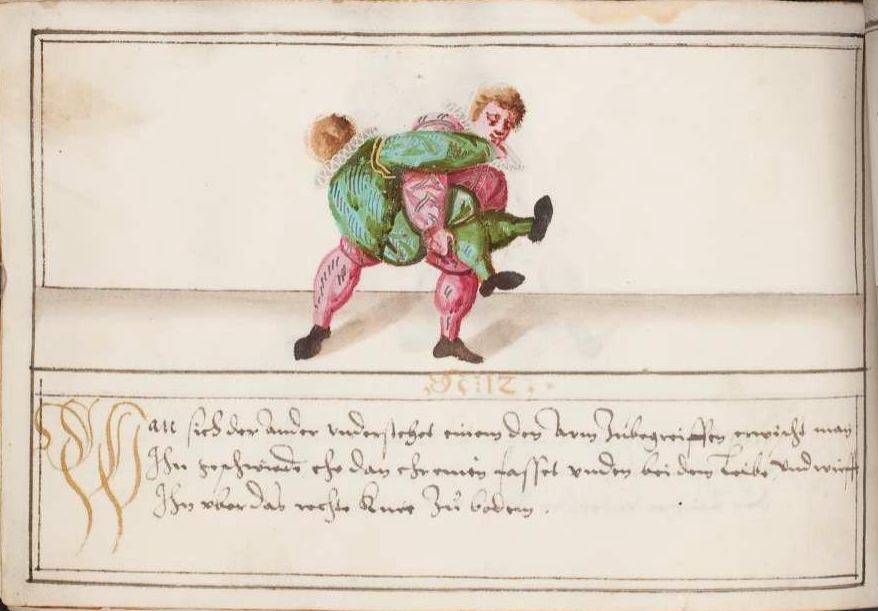 Wan sich der ander understehet einem den Arm zubegreiffen erwischt man
Ihn geschwindt ehe dan ehr einen fasset unden bei dem Leibe und wirfft
Ihn uber das rechte Knie zu bodem.